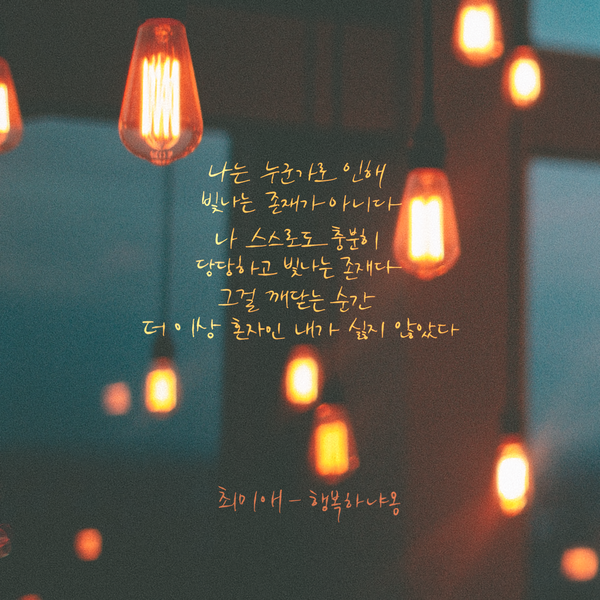 나는 누군가로 인해
빛나는 존재가 아니다
나 스스로도 충분히
당당하고 빛나는 존재다
그걸 깨닫는 순간
더 이상 혼자인 내가 싫지 않았다
최미애 - 행복하냐옹